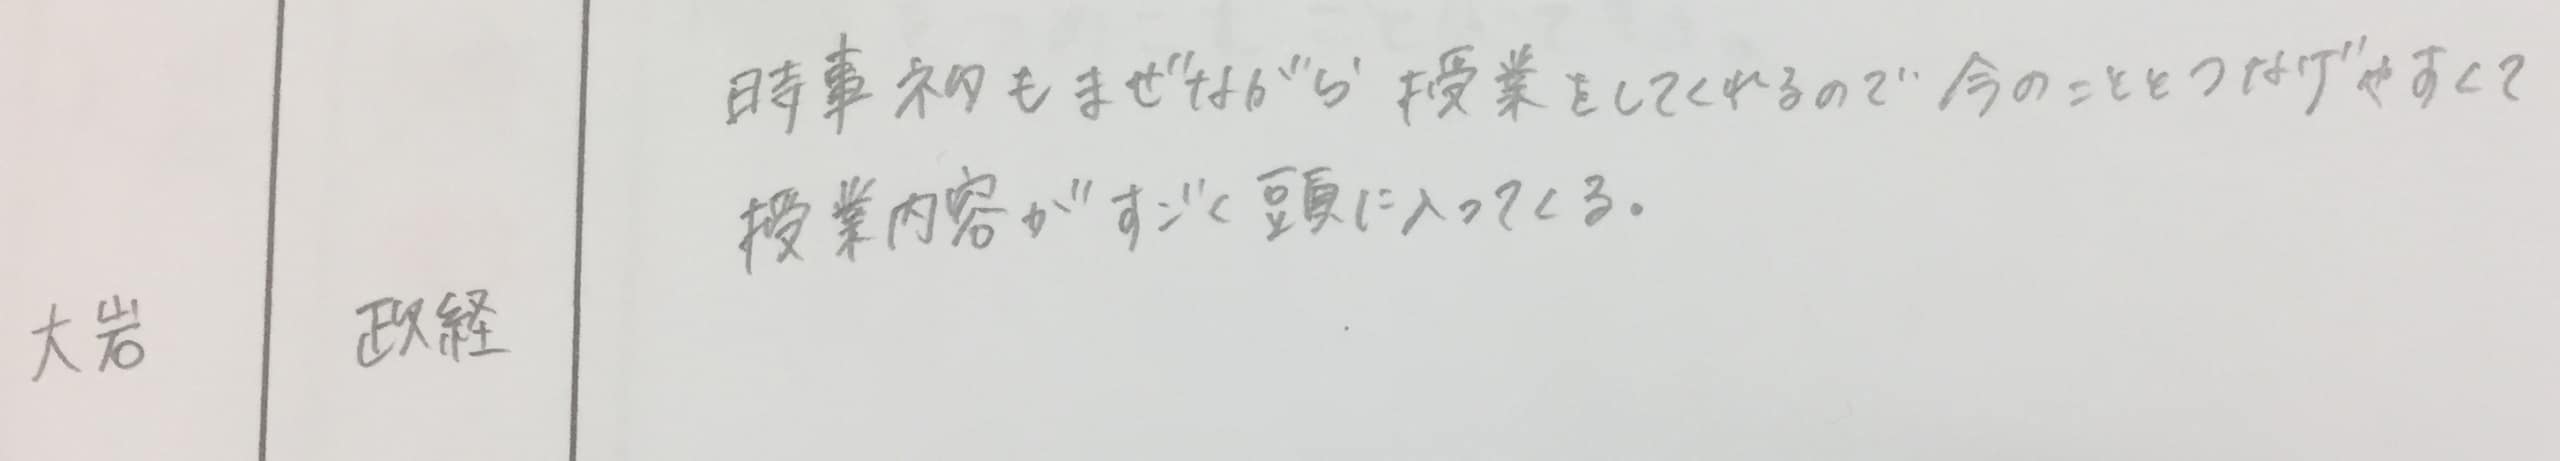 時事ネタもまぜながら授業をしてくれるので今のこととつなげやすくて
授業内容がすごく頭に入ってくる。
大岩
政経